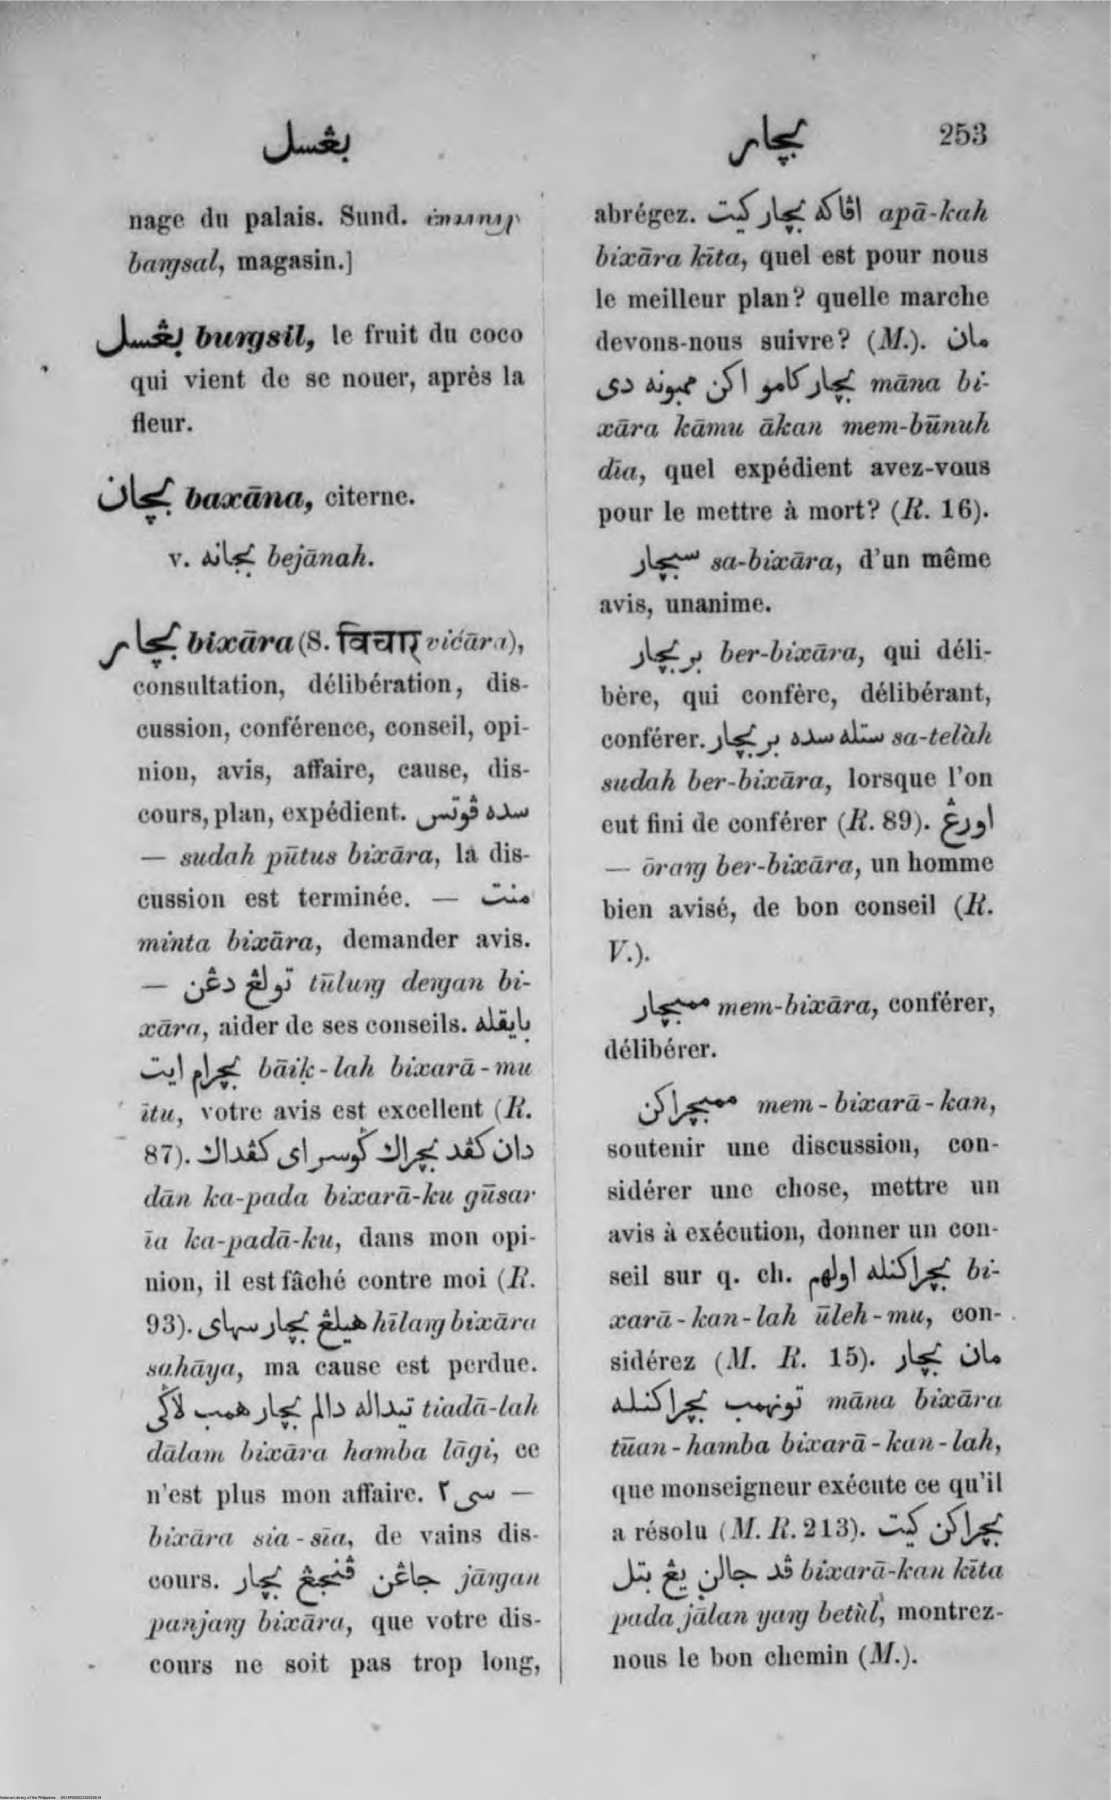 بڠسل
بچار
253
nage du palais. Sund.
baŋsal, magasin.]
بڠسل buŋsil, le fruit du coco
qui vient de se nouer, après la
fleur.
بچان baxāna, citerne.
v. بجانه bejānah.
بچار bixāra (S. विचार् vićāra),
consultation, délibération, dis-
cussion, conférence, conseil, opi-
nion, avis, affaire, cause, dis-
cours, plan, expédient. سده ڤوتس
— sudah pūtus bixāra, la dis-
cussion est terminée. — منت
minta bixāra, demander avis.
— تولڠ دڠن tūluŋ deŋan bi-
xāra, aider de ses conseils. بايقله
بچرام ايت bāiḳ-lah bixarā-mu
ītu, votre avis est excellent (R.
87). دان كڤد بچراك ݢوسر اي كڤداك
dān ka-pada bixarā-ku gūsar
īa ka-padā-ku, dans mon opi-
nion, il est fâché contre moi (R.
93). هيلڠ بچار سهاي hīlaŋ bixāra
sahāya, ma cause est perdue.
تيداله دالم بچار همب لاݢي tiadā-lah
dālam bixāra hamba lāgi, ce
n'est plus mon affaire. سي٢ —
bixāra sia-sīa, de vains dis-
cours. جاڠن ڤنجڠ بچار jāŋan
panjaŋ bixāra, que votre dis-
cours ne soit pas trop long,
abrégez. اڤاكه بچار كيت apā-kah
bixāra kīta, quel est pour nous
le meilleur plan? quelle marche
devons-nous suivre? (M.). مان
بچار كامو اكن ممبونه دي māna bi-
xāra kāmu ākan mem-būnuh
dīa, quel expédient avez-vous
pour le mettre à mort? (R. 16).
سبچار sa-bixāra, d'un même
avis, unanime.
بربچار ber-bixāra, qui déli-
bère, qui confère, délibérant,
conférer. ستله سده بربچار sa-telàh
sudah ber-bixāra, lorsque l'on
eut fini de conférer (R. 89). اورڠ
— ōraŋ ber-bixāra, un homme
bien avisé, de bon conseil (R.
V.).
ممبچار mem-bixāra, conférer,
délibérer.
ممبچراكن mem-bixarā-kan,
soutenir une discussion, con-
sidérer une chose, mettre un
avis à exécution, donner un con-
seil sur q. ch. بچراكنله اولهم bi-
xarā-kan-lah ūleh-mu, con-
sidérez (M. R. 15). مان بچار
تونهمب بچراكنله māna bixāra
tūan-hamba bixarā-kan-lah,
que monseigneur exécute ce qu'il
a résolu (M. R. 213). بچراكن كيت
ڤد جالن يڠ بتل bixarā-kan kīta
pada jālan yaŋ betùl, montrez-
nous le bon chemin (M.).